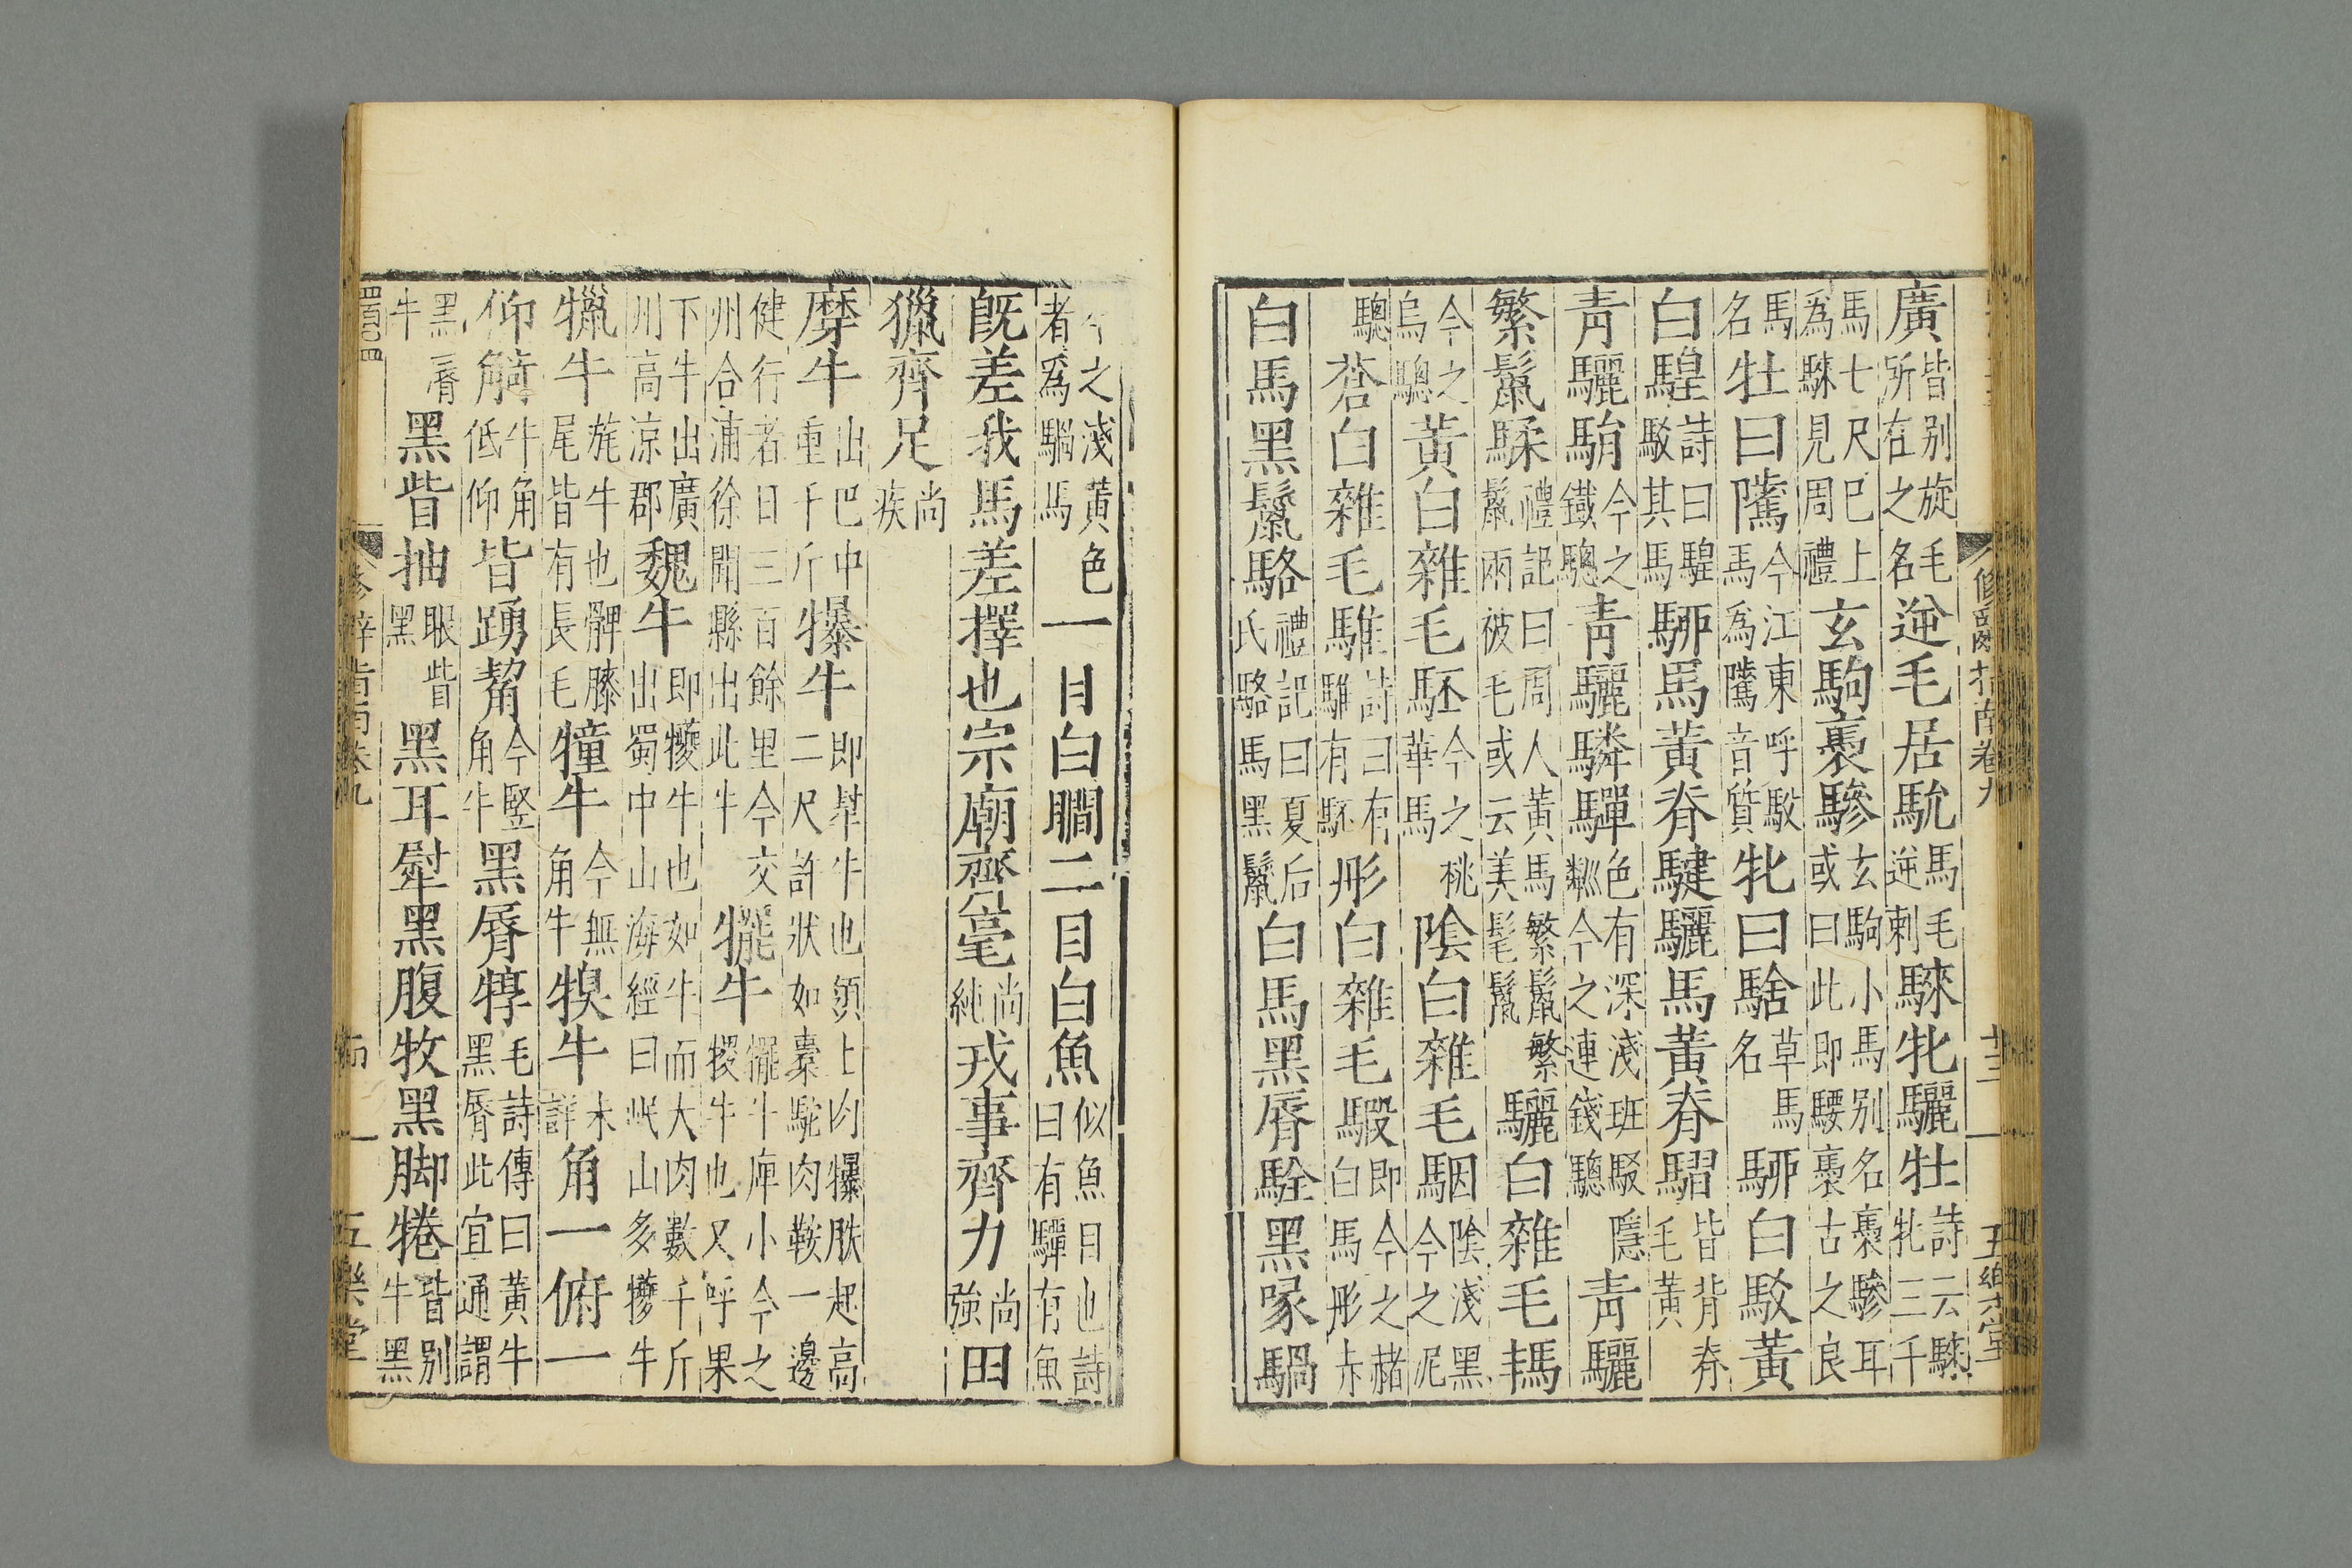 修辭指南卷九 廿二 五樂堂
廣皆別旋毛所在之名逆毛居馻馬毛逆刺騋牝驪牡詩云騋牝三千
馬七尺巳上為騋見周禮玄駒褭驂玄駒小馬別名褭驂耳或曰此即騕褭古之良
馬名牡曰隲今江東呼駁馬為隲音質牝曰騇草馬名駵白駁黃
白騜詩曰騜駁其馬駵馬黃脊騝驪馬黃脊騽皆背脊毛黃
青驪駽今之鐵驄青驪驎驒色有深淺班駁隱粼今之連錢驄青驪
繁鬣騥禮記曰周人黃馬繁鬣繁鬣兩被毛或云美髦鬣驪白雜毛駂
今之烏驄黃白雜毛駓今之桃華馬陰白雜毛駰陰淺黑今之泥
驄蒼白雜毛騅詩曰有騅有駓彤白雜毛騢即今之赭白馬彤赤
白馬黑鬣駱禮記曰夏后氏駱馬黑鬣白馬黑脣駩黑喙騧
今之淺黃色者爲騧馬一目白瞷二目白魚似魚目也詩曰有驒有魚
旣差我馬差擇也宗廟齊毫尚純戎事齊力尚強田
獵齊足尚疾
犘牛出巴中重千斤犦牛即犎牛也領上肉犦胅起高二尺許狀如橐駝肉鞍一邊
健行者日三百餘里今交州合浦徐聞縣出此牛犤牛犤牛庳小今之㹎牛也又呼果
下牛出廣州高涼郡魏牛即犪牛也如牛而大肉數千斤出蜀中山海經曰岷山多犪牛
犣牛旄牛也髀膝尾皆有長毛犝牛今無角牛犑牛未詳角一俯一
仰觭牛角低仰皆踴觢今竪角牛黑脣犉毛詩傳曰黃牛黑脣此宜通謂
黑脣牛黑眥牰眼眥黑黑耳犚黑腹牧黑脚犈皆別牛黑
修辭指南卷九 五樂堂